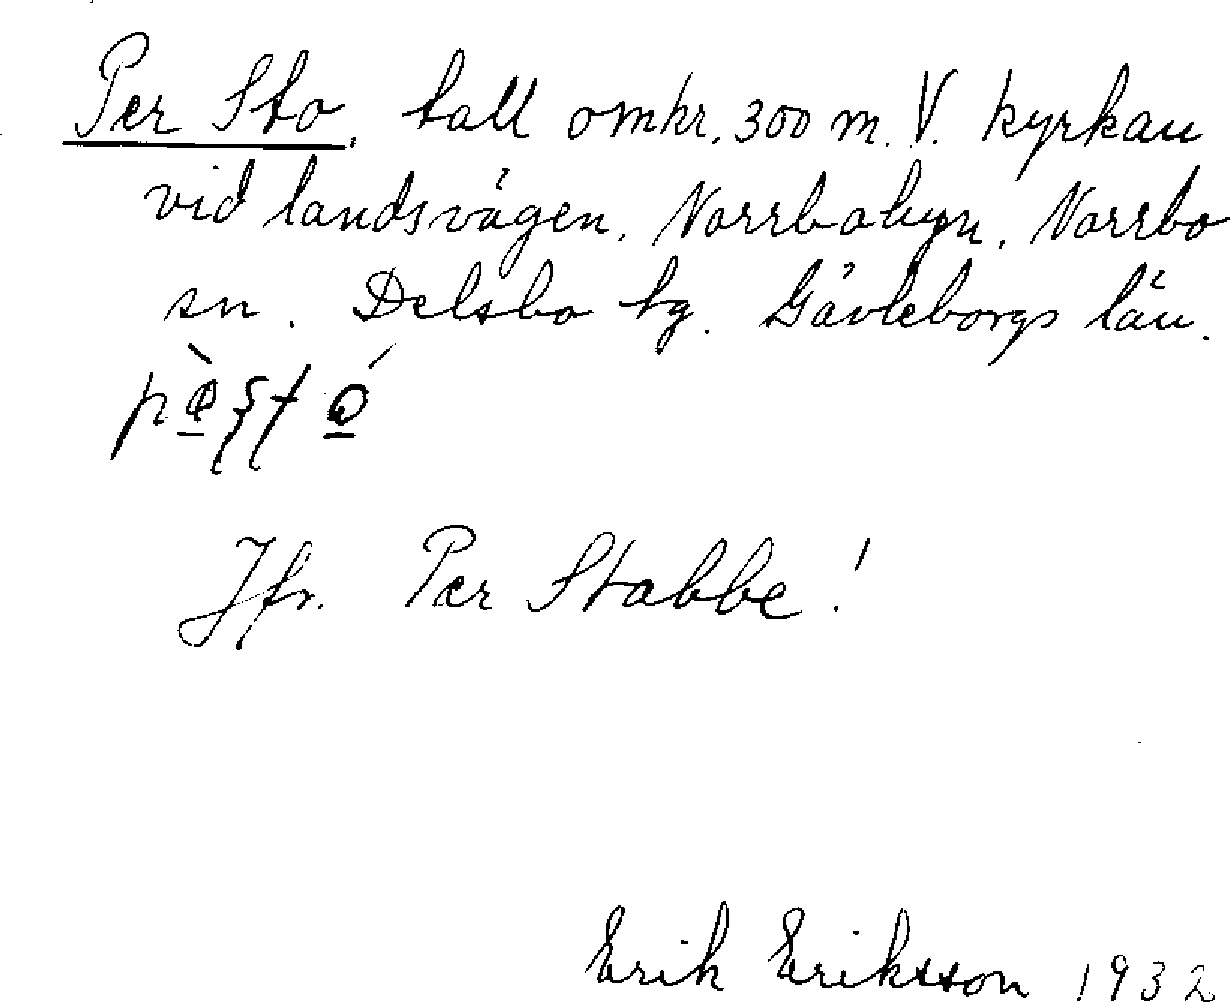 Per Sto, tall omkr. 300 m. V. kyrkan
vid landsvägen. Norrbobyn, Norrbo
sn. Delsbo tg. Gävleborgs län.
Jfr. Per Stabbe!
Erik Eriksson 1932